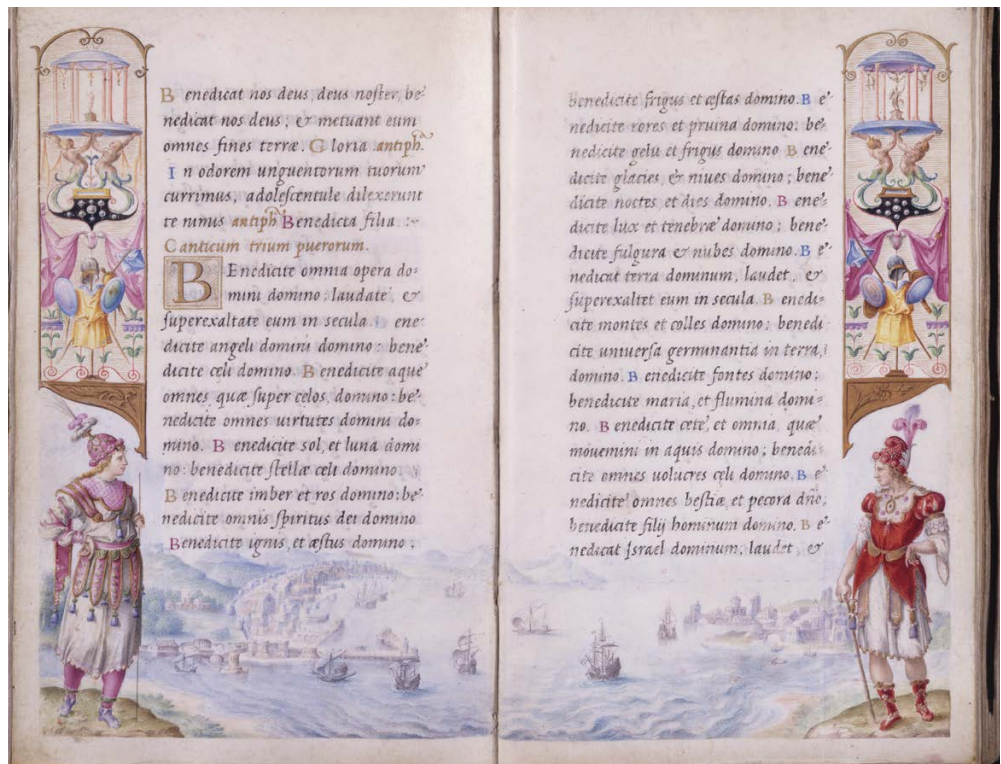 Benedicat nos deus, deus noster, be-
nedicat nos deus; & metuant eum
omnes fines terræ. Gloria antiph.
In odorem unguentorum tuorum
currimus, adolescentule dilexerunt
te nimis antiph Benedicta filia :~
Canticum trium puerorum.
BEnedicite omnia opera do-
mini domino: laudate, &
superexaltate eum in secula. ene-
dicite angeli domini domino: bene-
dicite celi domino. Benedicite aque
omnes quæ super celos, domino: be-
nedicite omnes virtutes domini do-
mino. Benedicite sol, et luna domi
no: benedicite stellæ celi domino.
Benedicite imber et ros domino: be-
nedicite omnis spiritus dei domino
Benedicite ignis, et æstus domino:
Benedicite frigus et æstas domino. Be-
nedicite rores et pruina domino: be-
nedicite gelu et frigus domino Bene-
dicite glacies, & niues domino; bene-
dicite noctes et dies domino. Bene-
dicite lux et tenebræ domino; bene-
dicite fulgura & nubes domino. Be-
nedicat terra dominum, laudet, &
superexaltet eum in secula. Benedi-
cite montes et colles domino: benedi
cite uniuersa germinantia in terra,
domino. Benedicite fontes domino;
benedicite maria, et flumina domi-
no. Benedicite cete, et omnia, quæ
mouentur in aquis domino; benedi-
cite omnes uolucres celi domino. Be-
nedicite omnes bestiæ, et pecora dño,
benedicite filij hominum domino. Be-
nedicat Israel dominum, laudet, &